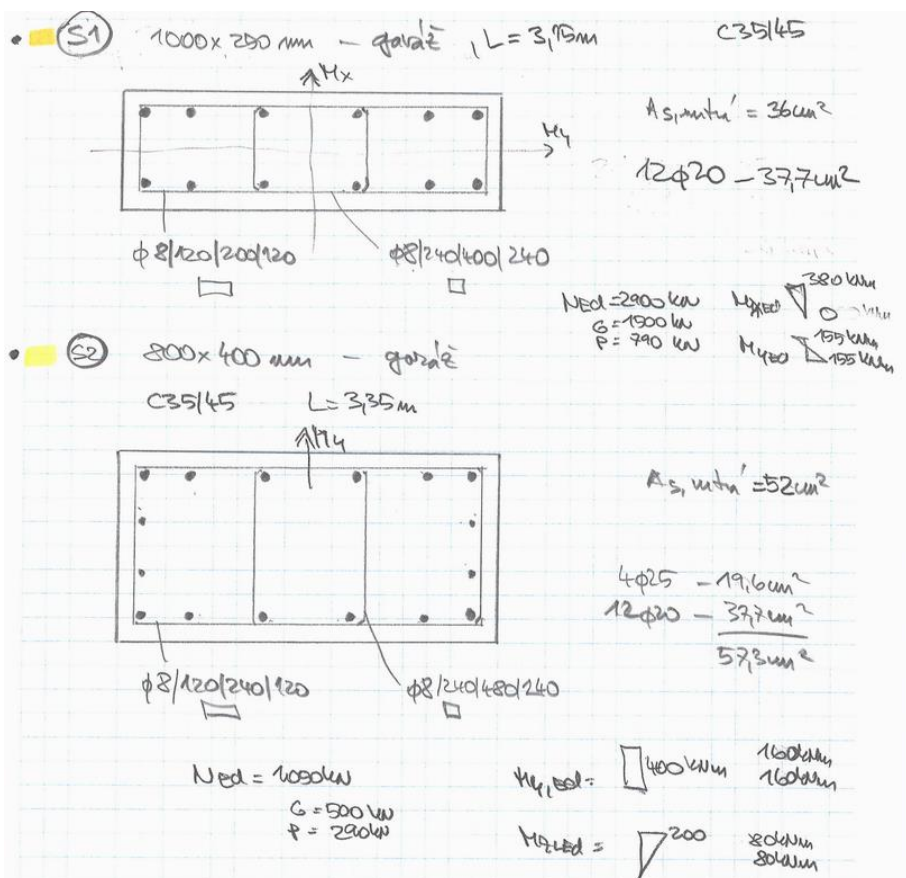 S1 1000x250 mm – garáž, L=3,75m C35/45
Mx
As,nutná = 36cm²
My
12ϕ20 – 37,7cm²
ϕ8/120/200/120 ϕ8/240/400/240
NEd=2900 kN MxEd 380 kNm
G=1500 kN 0
P=790 kN MyEd 155 kNm
155 kNm
S2 800x400 mm – garáž
C35/45 L=3,35m
My
As,nutná = 52cm²
4ϕ25 – 19,6cm²
12ϕ20 – 37,7cm²
57,3cm²
ϕ8/120/240/120 ϕ8/240/480/240
NEd = 1050kN My,Ed = 400 kNm 160kNm
160kNm
G=500 kN
P=290kN
MzEd = 200 80kNm
80kNm